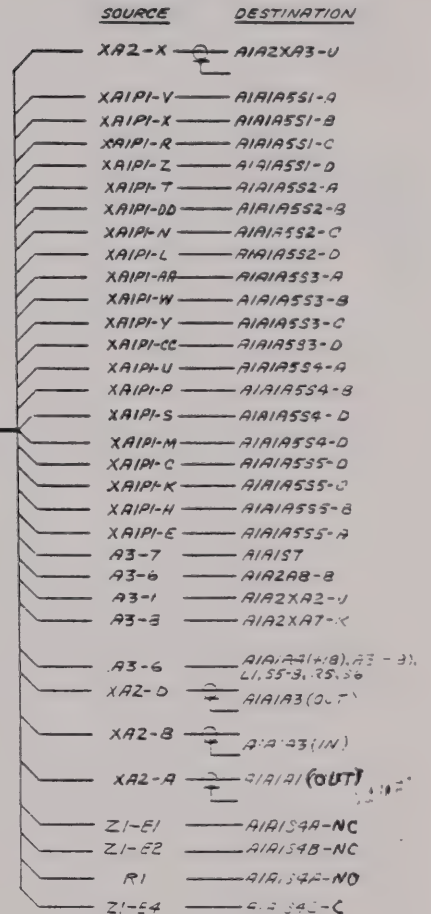 SOURCE DESTINATION
XA2-X A1A2XA3-U
XA1P1-V A1A1A5S1-A
XA1P1-X A1A1A5S1-B
XA1P1-R A1A1A5S1-C
XA1P1-Z A1A1A5S1-D
XA1P1-T A1A1A5S2-A
XA1P1-DD A1A1A5S2-B
XA1P1-N A1A1A5S2-C
XA1P1-L A1A1A5S2-D
XA1P1-AA A1A1A5S3-A
XA1P1-W A1A1A5S3-B
XA1P1-Y A1A1A5S3-C
XA1P1-CC A1A1A5S3-D
XA1P1-U A1A1A5S4-A
XA1P1-P A1A1A5S4-B
XA1P1-S A1A1A5S4-D
XA1P1-M A1A1A5S4-D
XA1P1-C A1A1A5S5-D
XA1P1-K A1A1A5S5-C
XA1P1-H A1A1A5S5-B
XA1P1-E A1A1A5S5-A
A3-7 A1A1S7
A3-6 A1A2A8-8
A3-1 A1A2XA2-U
A3-3 A1A2XA7-K
A3-6
L1, S5-3, R5, S6
XA2-D A1A1A3(OUT)
XA2-B A1A1A3(IN)
XA2-A A1A1A1(OUT)
Z1-E1 A1A1S4A-NC
Z1-E2 A1A1S4B-NC
R1 A1A1S4A-NO
Z1-E4